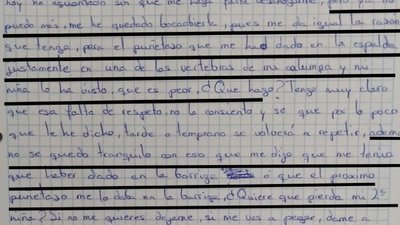 hoy he aguantado sin que me haga falta desahogarme, pero ya no
puedo más, me he quedado bocabierta, pues me da igual la razon
que tenga, para el puñetaso que me ha dado en la espalda
justamente en una de las vertebras de mi columpa y mi
niña lo ha visto, que es peor, ¿Que hago? Tengo muy claro
que esa falta de respeto no la consiento y sé que por lo poco
que le he dicho, tarde o temprano se volverá a repetir, adema
no se quedo tranquilo con eso que me dijo que me tenia
que haber dado en la barriga ó que el proximo
puñetaso me lo daba en la barriga, ¿Quiere que pierda mi 2ª
niña? Si no me quieres dejame, si me vas a pegar, dame a